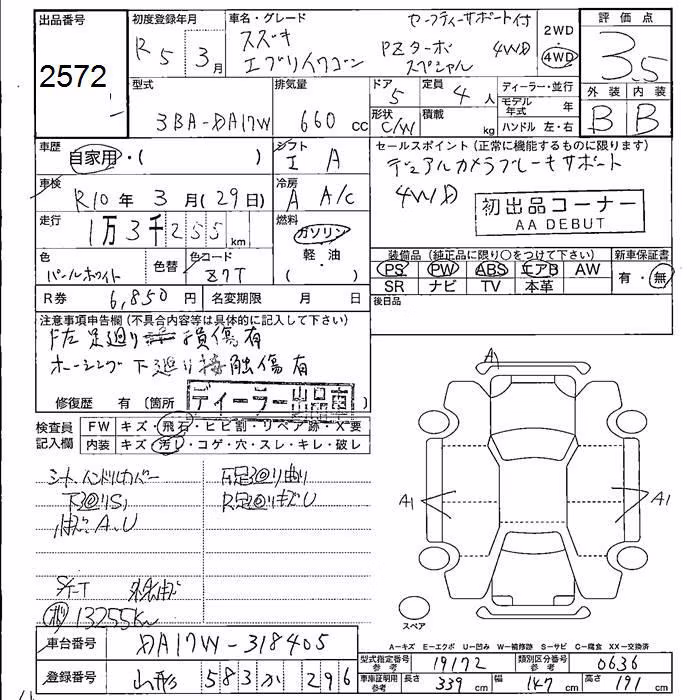 出品番号
2572
初度登録年月
R5 3月
車名・グレード
スズキ
エブリイワゴン
セーフティーサポート付
PZターボ 4WD
スペシャル
2WD
4WD
評価点
3.5
外装 内装
B B
型式
3BA-DA17W
排気量
660 cc
ドア
5
定員
4 人
形状
C/W
積載
kg
ディーラー・並行
モデル年式 年
ハンドル 左・右
車歴
自家用・( )
シフト
I A
車検
R10年 3月(29日)
冷房
A A/C
走行
1万3千255km
燃料
ガソリン
軽・油
( )
セールスポイント(正常に機能するものに限ります)
デュアルカメラブレーキサポート
4WD
初出品コーナー
AA DEBUT
色
パールホワイト
色替
色コード
Z7T
装備品(純正品に限り○をつけて下さい)
PS PW ABS エアB AW
SR ナビ TV 本革
新車保証書
有・無
R券 6,850円
名変期限 月 日
後日品
注意事項申告欄(不具合内容等は具体的に記入して下さい)
F左足廻り損傷有
ホーシング下廻り接触傷有
修復歴 有(箇所 )
ディーラー出品車
検査員記入欄
FW キズ・飛石・ヒビ割・リペア跡・X要
内装 キズ・汚レ・コゲ・穴・スレ・キレ・破レ
シート、ハンドルカバー
下回りS
A、U
F左足回り曲り
R足回りキズU
13255Km
A
A1
A1
スペア
A-キズ E-エクボ U-凹み W-補修跡 S-サビ C-腐食 XX-交換済
車台番号 DA17W-318405
登録番号 山形 583 か 296
型式指定番号 参考 19172
類別区分番号 参考 0636
車庫証明用 参考 長さ 339cm 幅 147cm 高さ 191cm